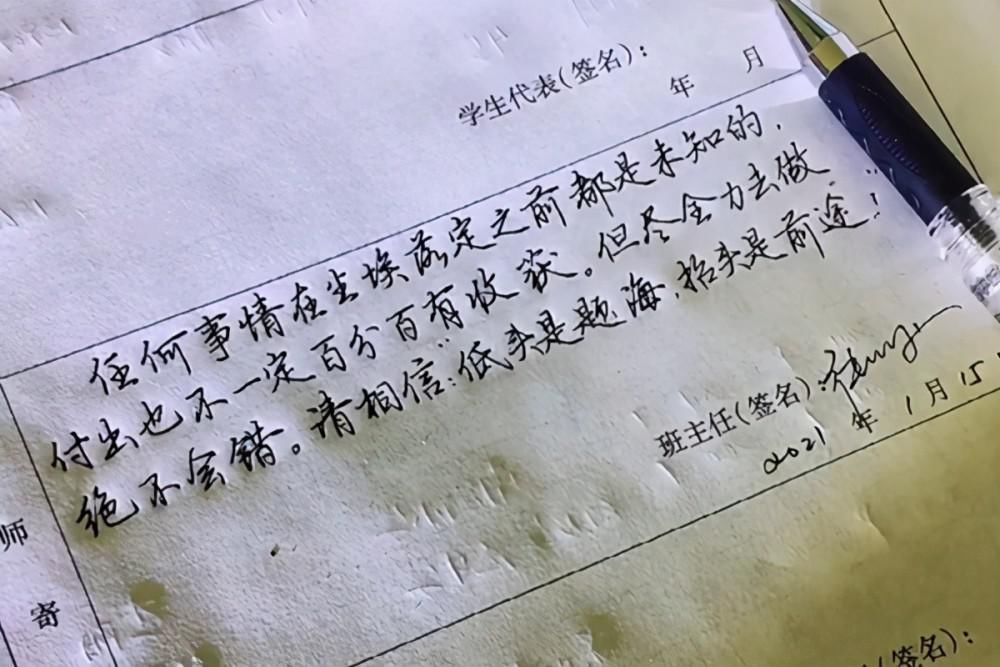 学生代表(签名)：
年 月
任何事情在尘埃落定之前都是未知的，
付出也不一定百分百有收获。但尽全力去做
绝不会错。请相信："低头是题海，抬头是前途！"
班主任(签名)：
2021 年 1 月 15
师
寄
(签名)：